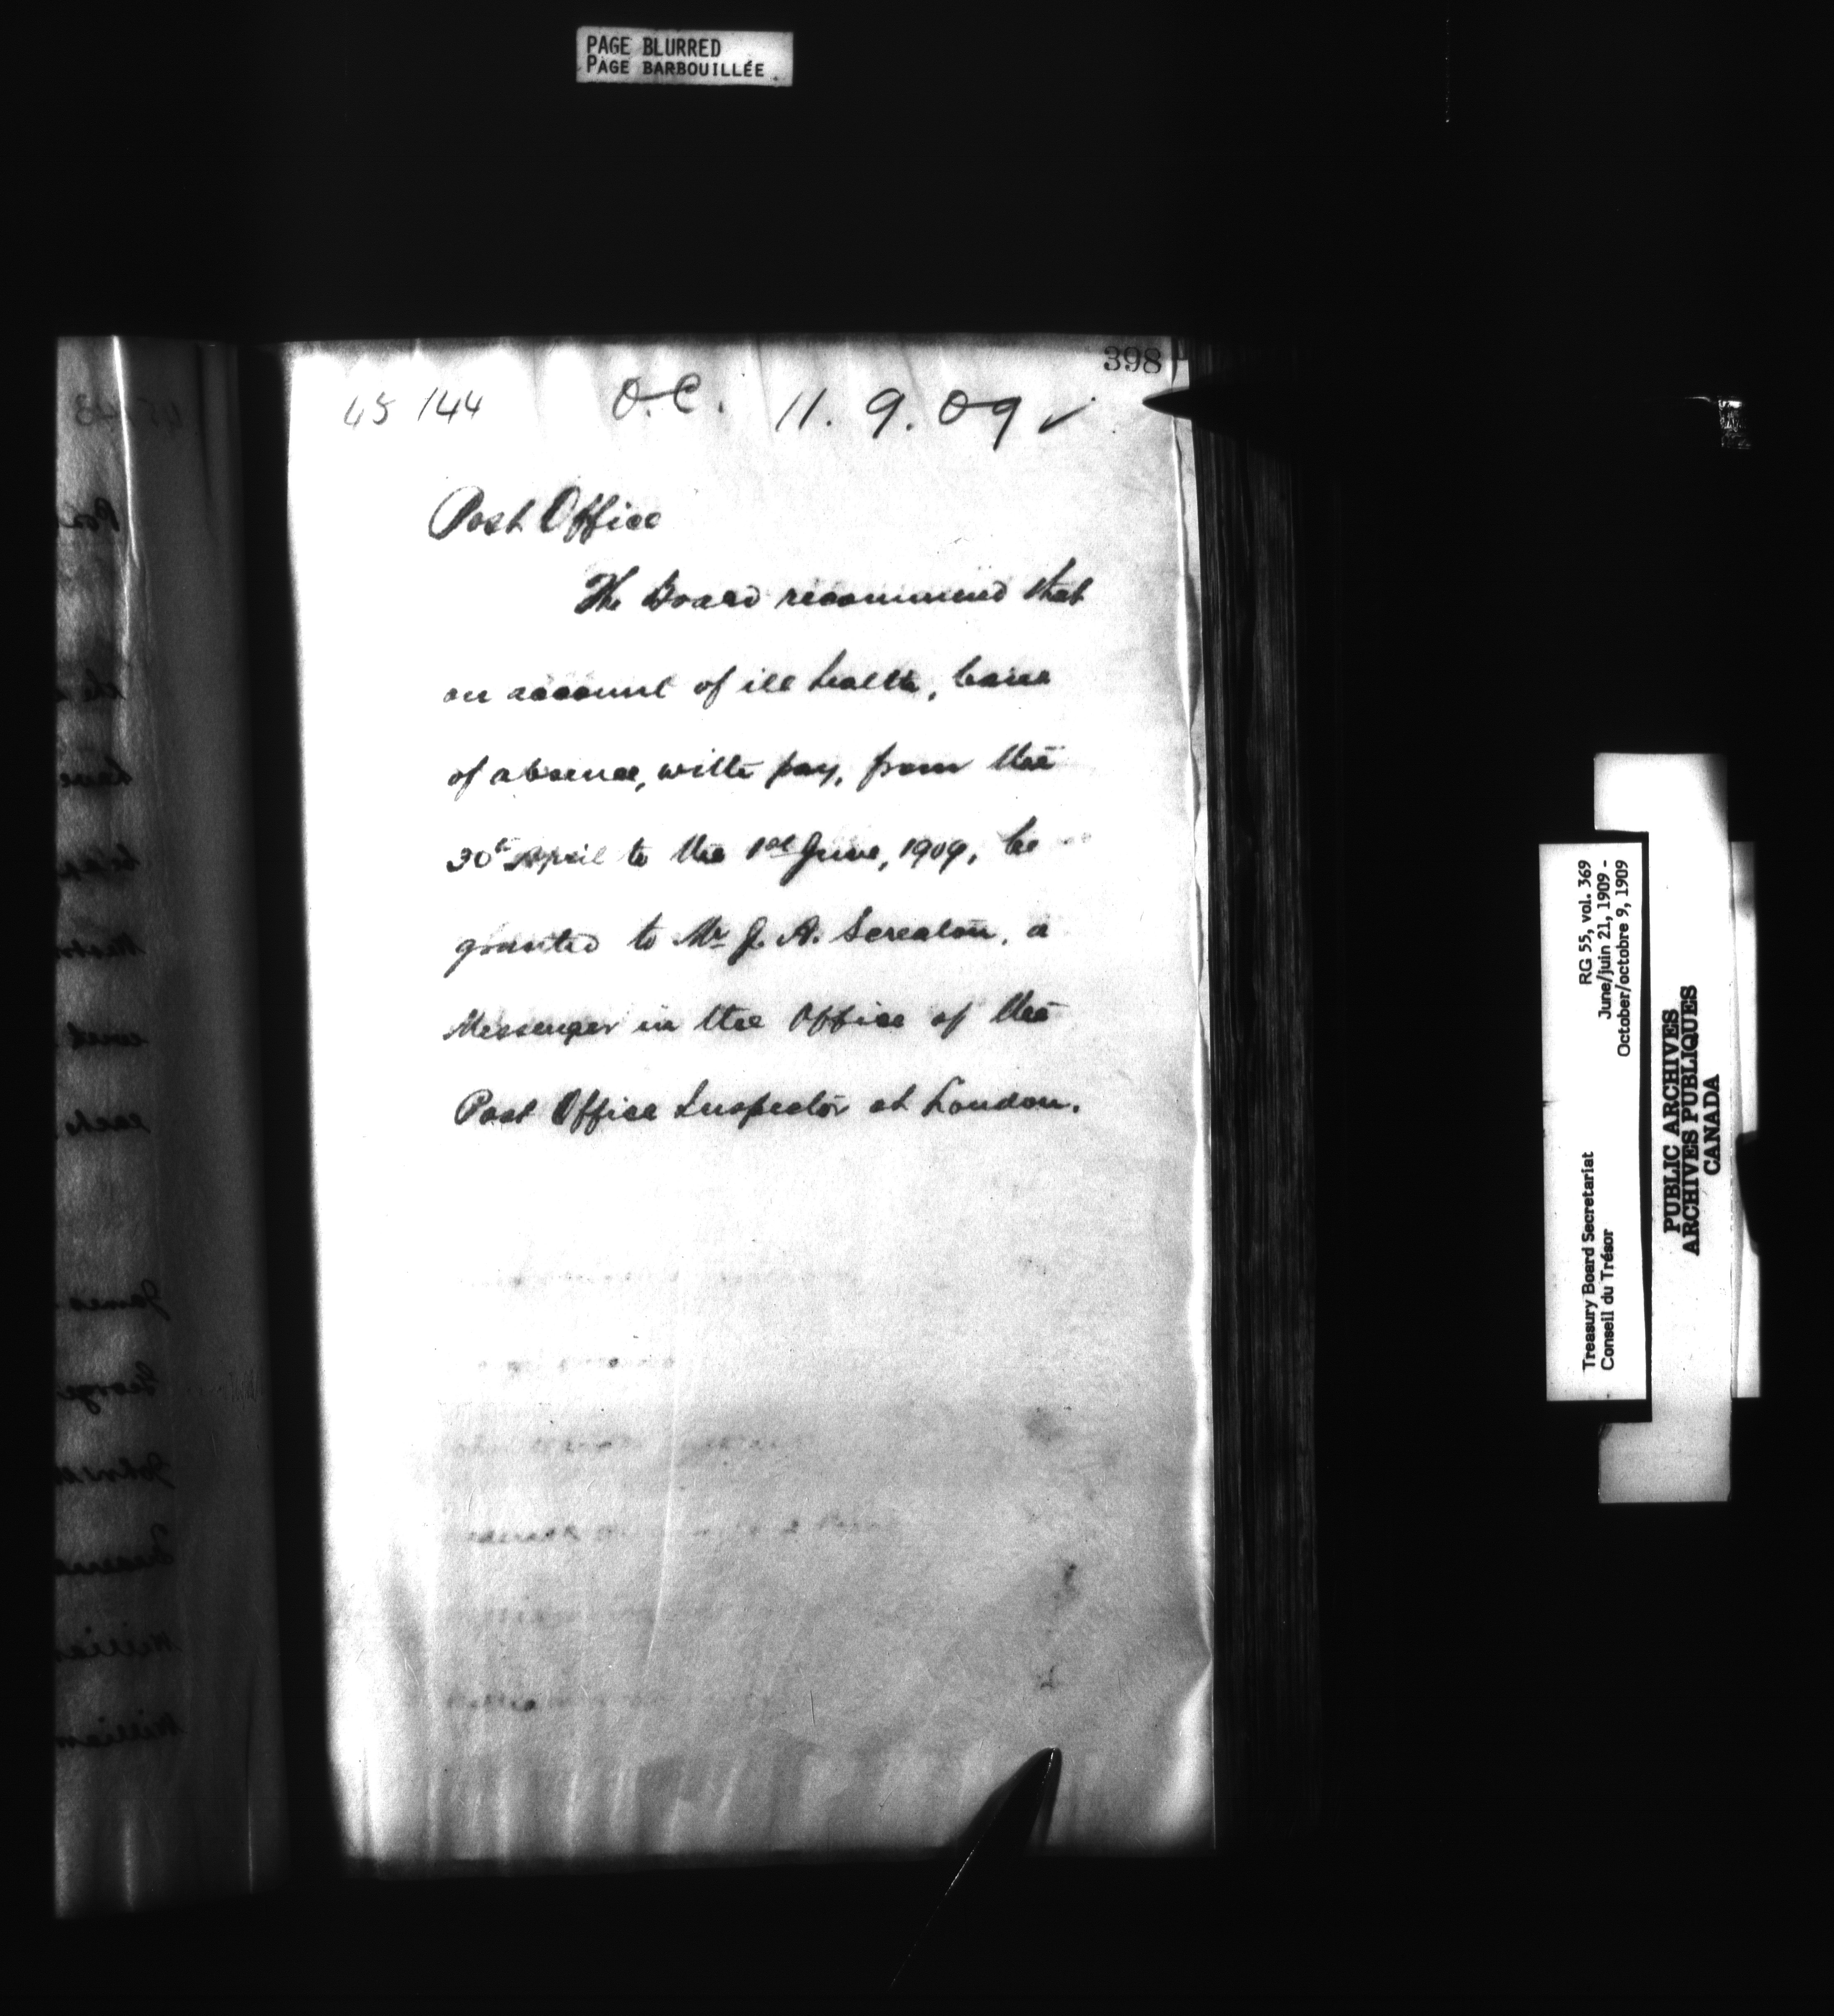 PAGE BLURRED
PAGE BARBOUILLÉE
398
45144 O.C. 11.9.09 ✓
Post Office
The Board recommend that
on account of ill health, leave
of absence, with pay, from the
30th April to the 1st June, 1909, be
granted to Mr J. A. Screaton, a
Messenger in the Office of the
Post Office Inspector at London.
Treasury Board Secretariat RG 55, vol. 369
Conseil du Trésor June/juin 21, 1909 -
October/octobre 9, 1909
PUBLIC ARCHIVES
ARCHIVES PUBLIQUES
CANADA